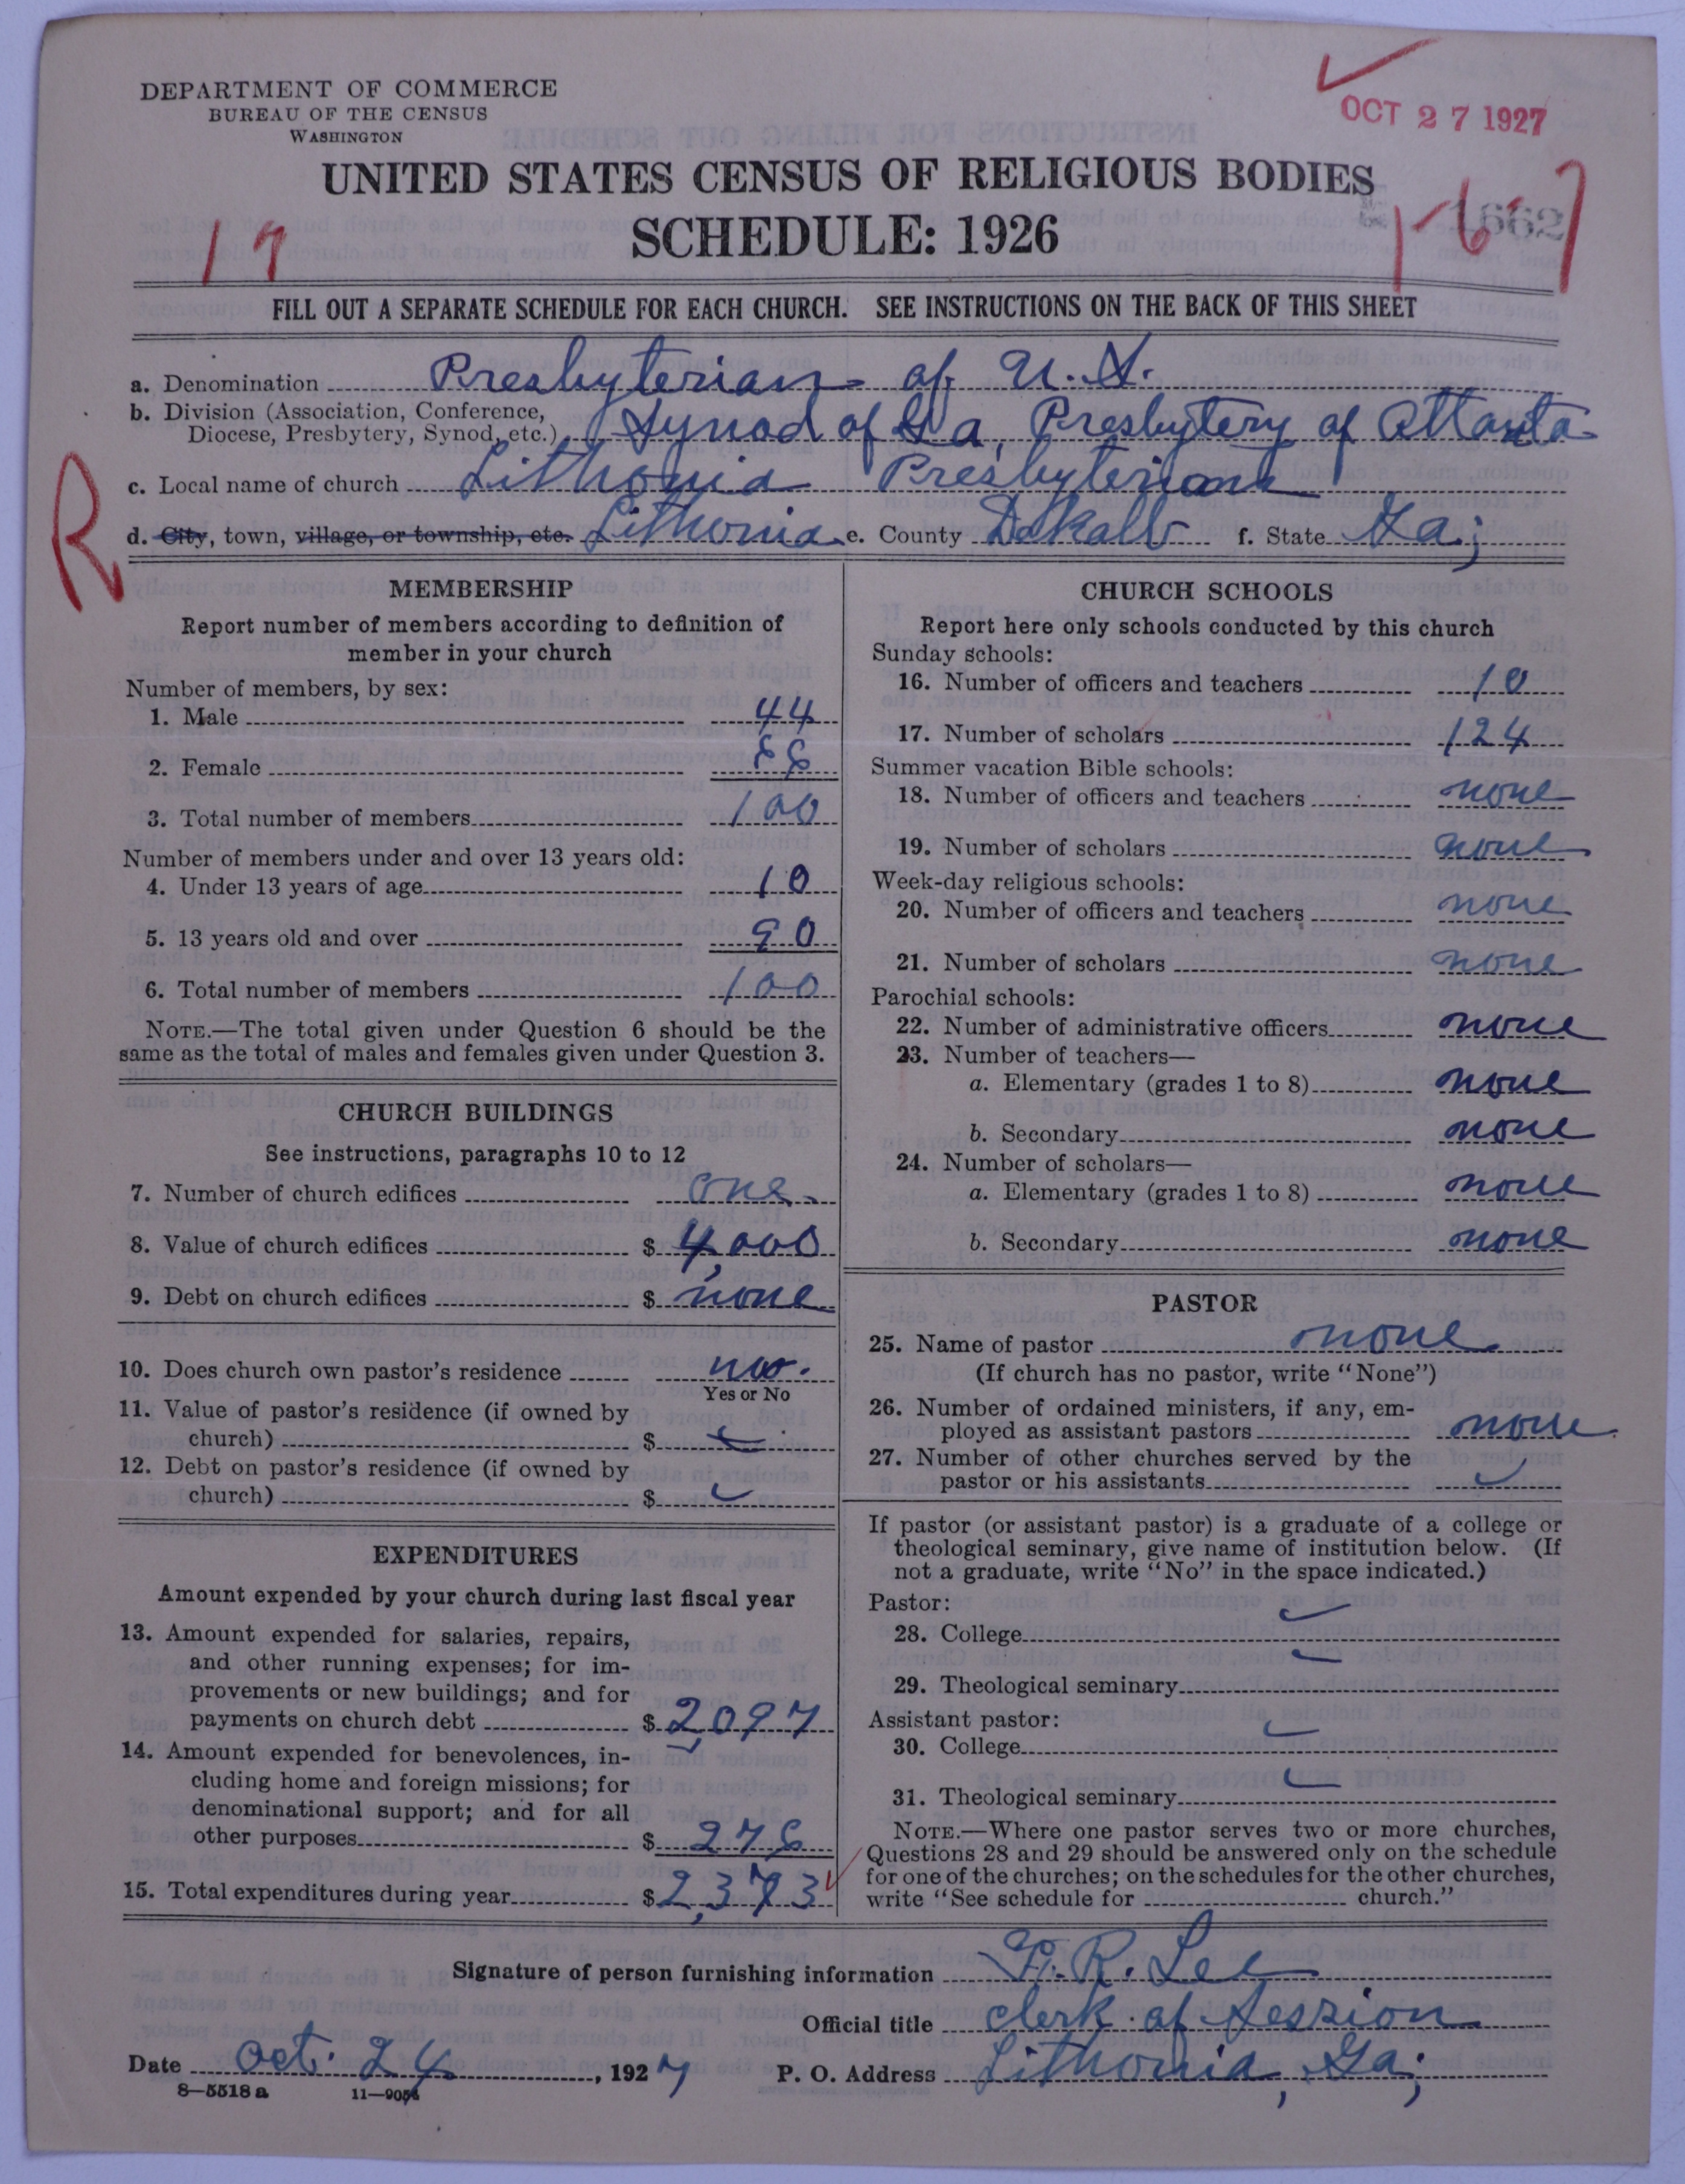 DEPARTMENT OF COMMERCE
BUREAU OF THE CENSUS
WASHINGTON
OCT 27 1927
UNITED STATES CENSUS OF RELIGIOUS BODIES
SCHEDULE: 1926
1662
17
1-6-7
FILL OUT A SEPARATE SCHEDULE FOR EACH CHURCH. SEE INSTRUCTIONS ON THE BACK OF THIS SHEET
a. Denomination Presbyterian of U.S.
b. Division (Association, Conference,
Diocese, Presbytery, Synod, etc.) Synod of Ga, Presbytery of Atlanta
c. Local name of church Lithonia Presbyterian
R
d. City, town, village, or township, etc. Lithonia e. County DeKalb f. State Ga;
MEMBERSHIP
Report number of members according to definition of
member in your church
Number of members, by sex:
1. Male 44
2. Female 56
3. Total number of members 100
Number of members under and over 13 years old:
4. Under 13 years of age 10
5. 13 years old and over 90
6. Total number of members 100
NOTE.—The total given under Question 6 should be the
same as the total of males and females given under Question 3.
CHURCH BUILDINGS
See instructions, paragraphs 10 to 12
7. Number of church edifices one
8. Value of church edifices $ 4,000
9. Debt on church edifices $ none
10. Does church own pastor's residence no.
Yes or No
11. Value of pastor's residence (if owned by
church) $
12. Debt on pastor's residence (if owned by
church) $
EXPENDITURES
Amount expended by your church during last fiscal year
13. Amount expended for salaries, repairs,
and other running expenses; for im-
provements or new buildings; and for
payments on church debt $ 2,097
14. Amount expended for benevolences, in-
cluding home and foreign missions; for
denominational support; and for all
other purposes $ 276
15. Total expenditures during year $ 2,373
CHURCH SCHOOLS
Report here only schools conducted by this church
Sunday schools:
16. Number of officers and teachers 10
17. Number of scholars 124
Summer vacation Bible schools:
18. Number of officers and teachers none
19. Number of scholars none
Week-day religious schools:
20. Number of officers and teachers none
21. Number of scholars none
Parochial schools:
22. Number of administrative officers none
23. Number of teachers—
a. Elementary (grades 1 to 8) none
b. Secondary none
24. Number of scholars—
a. Elementary (grades 1 to 8) none
b. Secondary none
PASTOR
25. Name of pastor none
(If church has no pastor, write "None")
26. Number of ordained ministers, if any, em-
ployed as assistant pastors none
27. Number of other churches served by the
pastor or his assistants
If pastor (or assistant pastor) is a graduate of a college or
theological seminary, give name of institution below. (If
not a graduate, write "No" in the space indicated.)
Pastor:
28. College
29. Theological seminary
Assistant pastor:
30. College
31. Theological seminary
NOTE.—Where one pastor serves two or more churches,
Questions 28 and 29 should be answered only on the schedule
for one of the churches; on the schedules for the other churches,
write "See schedule for church."
Signature of person furnishing information R. Lee
Official title Clerk of Session
Date Oct. 24, 1927 P. O. Address Lithonia, Ga;
8—5518 a 11—9054